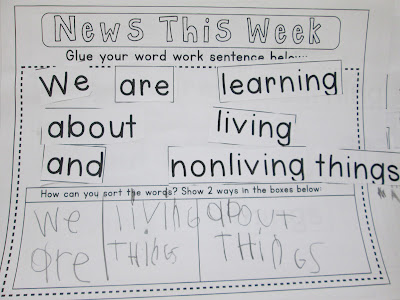 News This Week
Glue your word work sentence below:
We are learning
about living
and nonliving things
How can you sort the words? Show 2 ways in the boxes below:
We living about
are THINGS THINGS